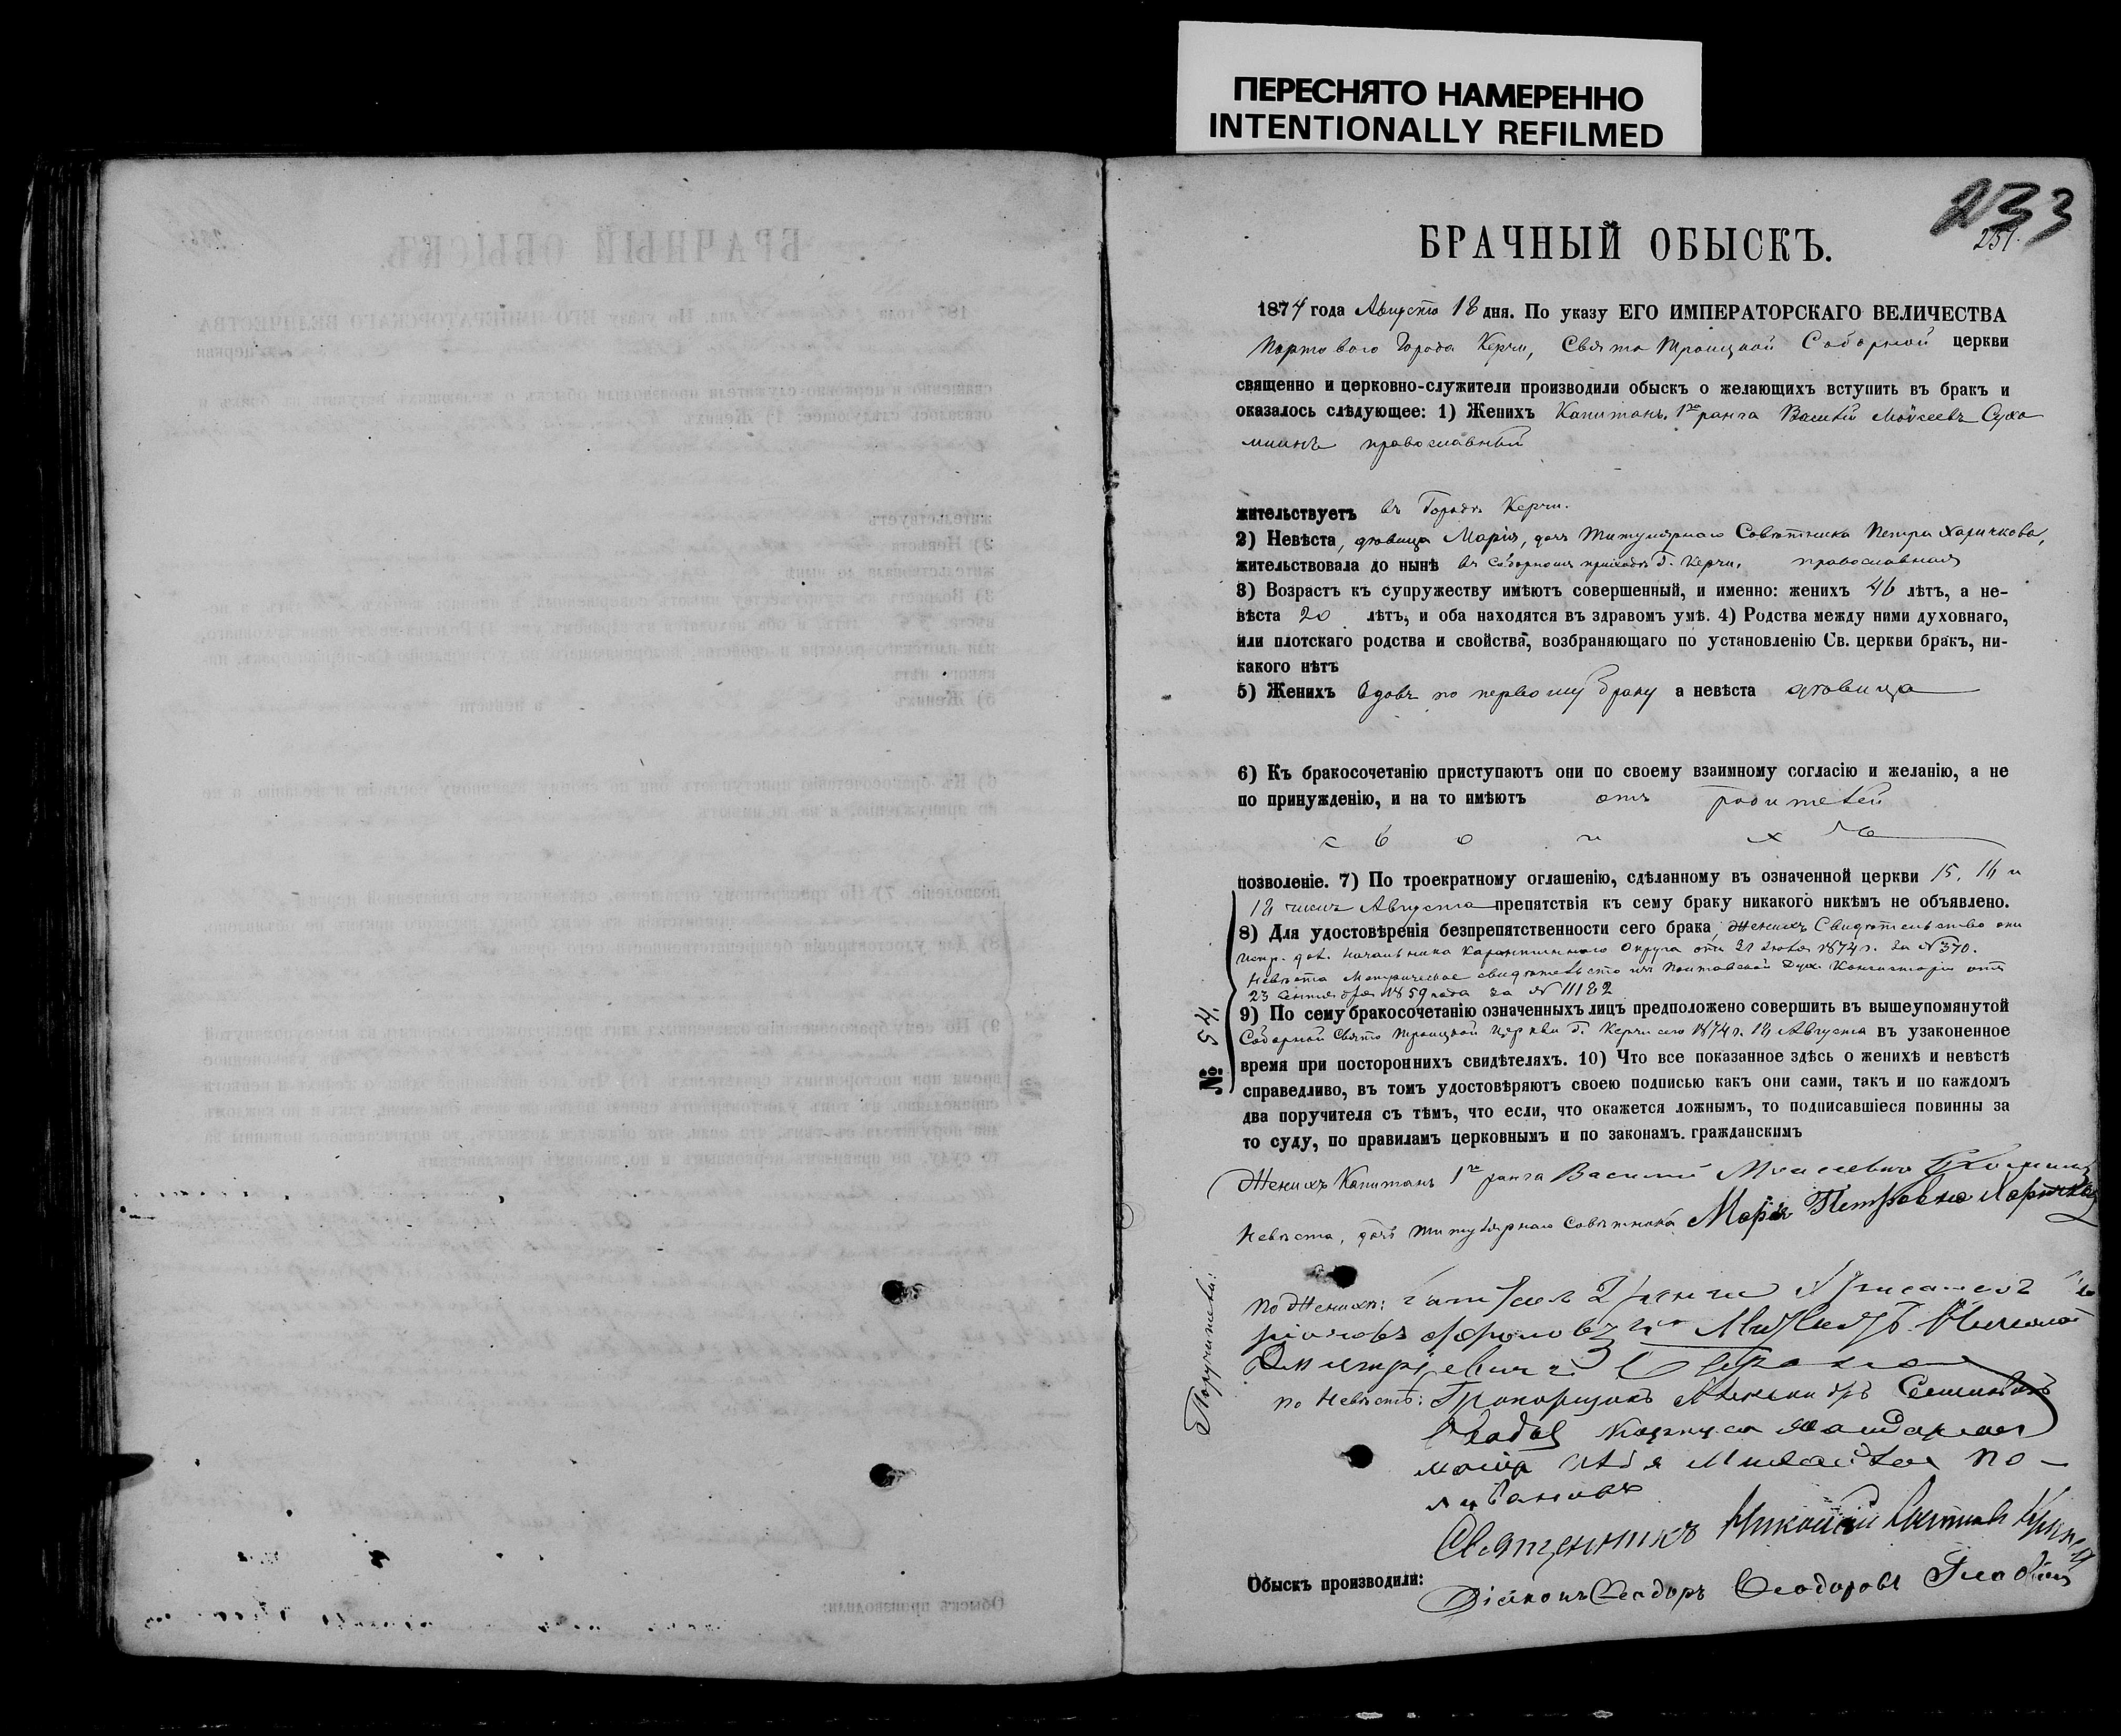 ПЕРЕСНЯТО НАМЕРЕННО
INTENTIONALLY REFILMED
233
251.
БРАЧНЫЙ ОБЫСКЪ.
1874 года Августа 18 дня. По указу ЕГО ИМПЕРАТОРСКАГО ВЕЛИЧЕСТВА
Портоваго Города Керчи, Свято Троицкой Соборной церкви
священно и церковно-служители производили обыскъ о желающихъ вступить въ бракъ и
оказалось слѣдующее: 1) Женихъ Капитанъ 1го ранга Василій Моѵсеевъ Сухо
минъ православный
жительствуетъ въ Городѣ Керчи.
2) Невѣста, дѣвица Марія, дочь Титулярнаго Совѣтника Петра Харичкова,
жительствовала до нынѣ въ Соборномъ приходѣ Г. Керчи, православная
3) Возрастъ къ супружеству имѣютъ совершенный, и именно: женихъ 46 лѣтъ, а не-
вѣста 20 лѣтъ, и оба находятся въ здравомъ умѣ. 4) Родства между ними духовнаго,
или плотскаго родства и свойства, возбраняющаго по установленію Св. церкви бракъ, ни-
какого нѣтъ
5) Женихъ вдовъ по первому браку а невѣста дѣвица
6) Къ бракосочетанію приступаютъ они по своему взаимному согласію и желанію, а не
по принужденію, и на то имѣютъ отъ родителей
своихъ
позволеніе. 7) По троекратному оглашенію, сдѣланному въ означенной церкви 15, 16 и
18 чиселъ Августа препятствія къ сему браку никакого никѣмъ не объявлено.
8) Для удостовѣренія безпрепятственности сего брака, Женихъ Свидѣтельство
Испр. дол. Начальника Карантиннаго Округа отъ 31 1874 г. за № 370.
Невѣста Метрическое свидѣтельство изъ Полтавской Дух. Консисторіи отъ
23 Сентября 1859 года за № 11182
№ 54.
9) По сему бракосочетанію означенныхъ лицъ предположено совершить въ вышеупомянутой
Соборной Свято Троицкой Церкви Г. Керчи сего 1874 г. 18 Августа въ узаконенное
время при постороннихъ свидѣтеляхъ. 10) Что все показанное здѣсь о женихѣ и невѣстѣ
справедливо, въ томъ удостовѣряютъ своею подписью какъ они сами, такъ и по каждомъ
два поручителя съ тѣмъ, что если, что окажется ложнымъ, то подписавшіеся повинны за
то суду, по правиламъ церковнымъ и по законамъ. гражданскимъ
Женихъ Капитанъ 1го ранга Василій Моисеевичъ Сухоминъ
Невѣста, дочь Титулярнаго Совѣтника Марія Петровна Харичкова
Поручители:
по Женихѣ:
Дмитріевичъ
по Невѣстѣ: Прапорщикъ Александръ Семеновъ
Корпуса
Священникъ Николай
Обыскъ производили:
Діаконъ Ѳеодоръ Ѳеодоровъ